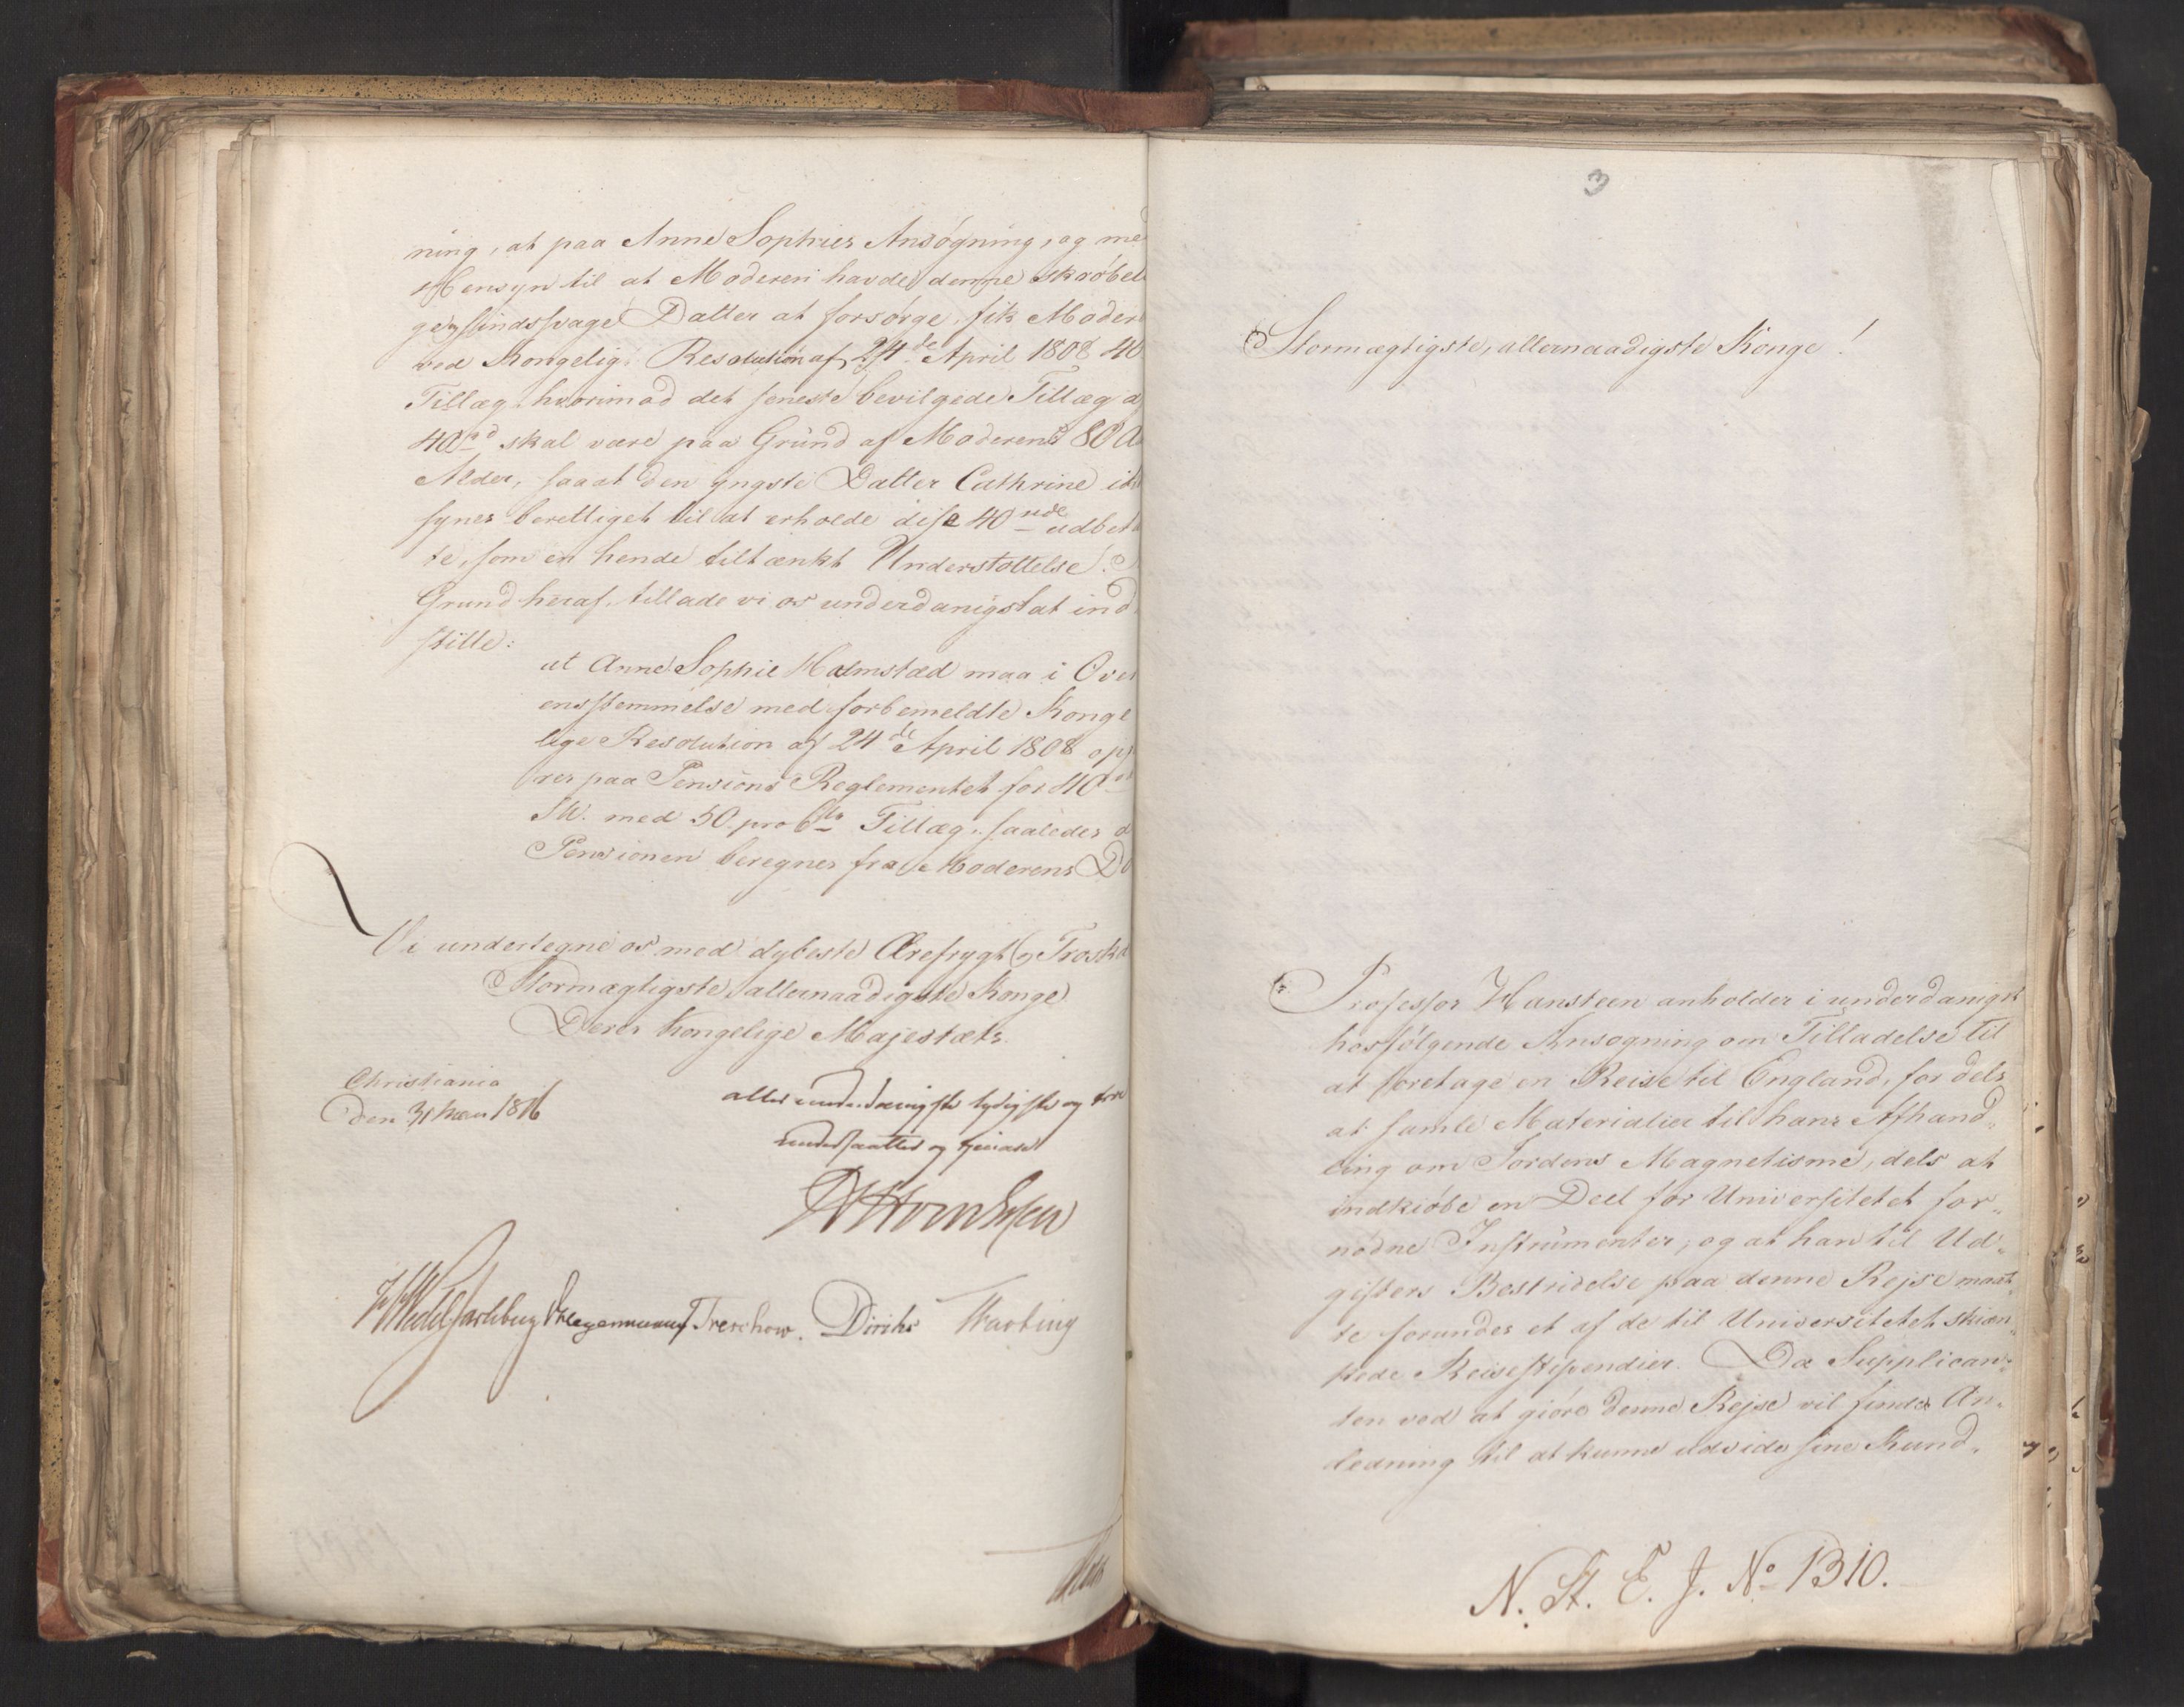 ning, at paa Anne Sophies Ansøgning, og me
Hensyn til at Moderen havde denne skrøbel
ge og sindssvage Datter at forsørge, fik Moder
ved Kongelig Resolution af 24de April 1808 40
Tillæg, hvorimod det seneste bevilgede Tillæg a
40rd skal være paa Grund af Moderens 80 A
Alder, saaat den yngste Datter Cathrine ik
synes berettiget til at erholde disse 40rde udbet
te, som en hende tiltænkt Understøttelse.
Grund heraf tillade vi os underdanigst at ind
stille:
at Anne Sophie Halmstad maa i Over
ensstemmelse med forbemeldte Konge
lige Resolution af 24de April 1808 opf
res paa Pensions Reglementet for 40rd
SW. med 50 pro Cto Tillæg, saaledes a
Pensionen beregnes fra Moderens Dø
Vi undertegne os med dybeste Ærefrygt og Troska
Stormægtigste, allernaadigste Konge
Deres Kongelige Majestæts
Christiania
den 31 1816
allerunderdanigste lydigste og troe
undersaatter og tjenere
Wedel Jarlsberg Treschow. Diriks
3
Stormægtigste, allernaadigste Konge!
Professor Hansteen anholder i underdanigst
hosfølgende Ansøgning om Tilladelse til
at foretage en Reise til England, for dels
at samle Materialier til hans Afhand„
ling om Jordens Magnetisme, dels at
indkiøbe en Deel for Universitetet for„
nødne Instrumenter, og at han til Ud„
gifters Bestridelse paa denne Rejse maat„
te forundes et af de til Universitetet skiæn„
kede Reisestipendier. Da Supplican„
ten ved at giøre denne Rejse vil finde An„
ledning til at kunne udvide sine Kund„
N. St. E. J. No 1310.